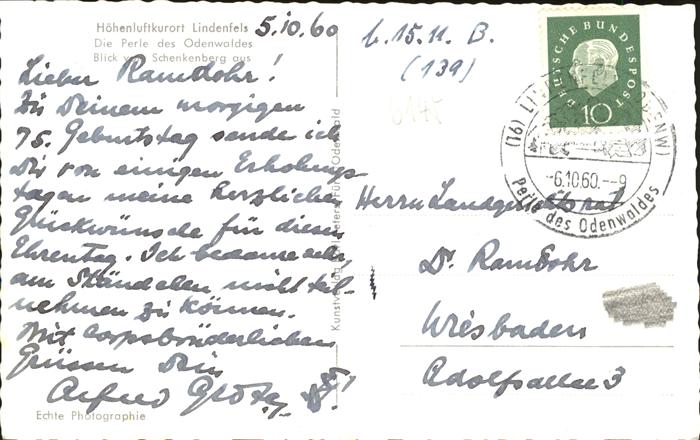 Höhenluftkurort Lindenfels
Die Perle des Odenwaldes
Blick von Schenkenberg aus
5.10.60
Lieber Ramdohr!
Zu Deinem morgigen
75. Geburtstag sende ich
Dir von einigen Erholungs-
tagen meine herzlichen
Glückwünsche für diesen
Ehrentag. Ich bedaure sehr,
am Ständchen nicht teil-
nehmen zu können.
Mit corpsbrüderlichen
Grüssen Dein
Alfred
Echte Photographie
Kunstverlag
für Odenwald
b. 15.11. B.
(139)
DEUTSCHE BUNDESPOST
10
(16) LINDENFELS (ODENW)
-6.10.60.--9
Perle des Odenwaldes
Herrn Landgerichtsrat
Dr. Ramdohr
Wiesbaden
Adolfsallee 3